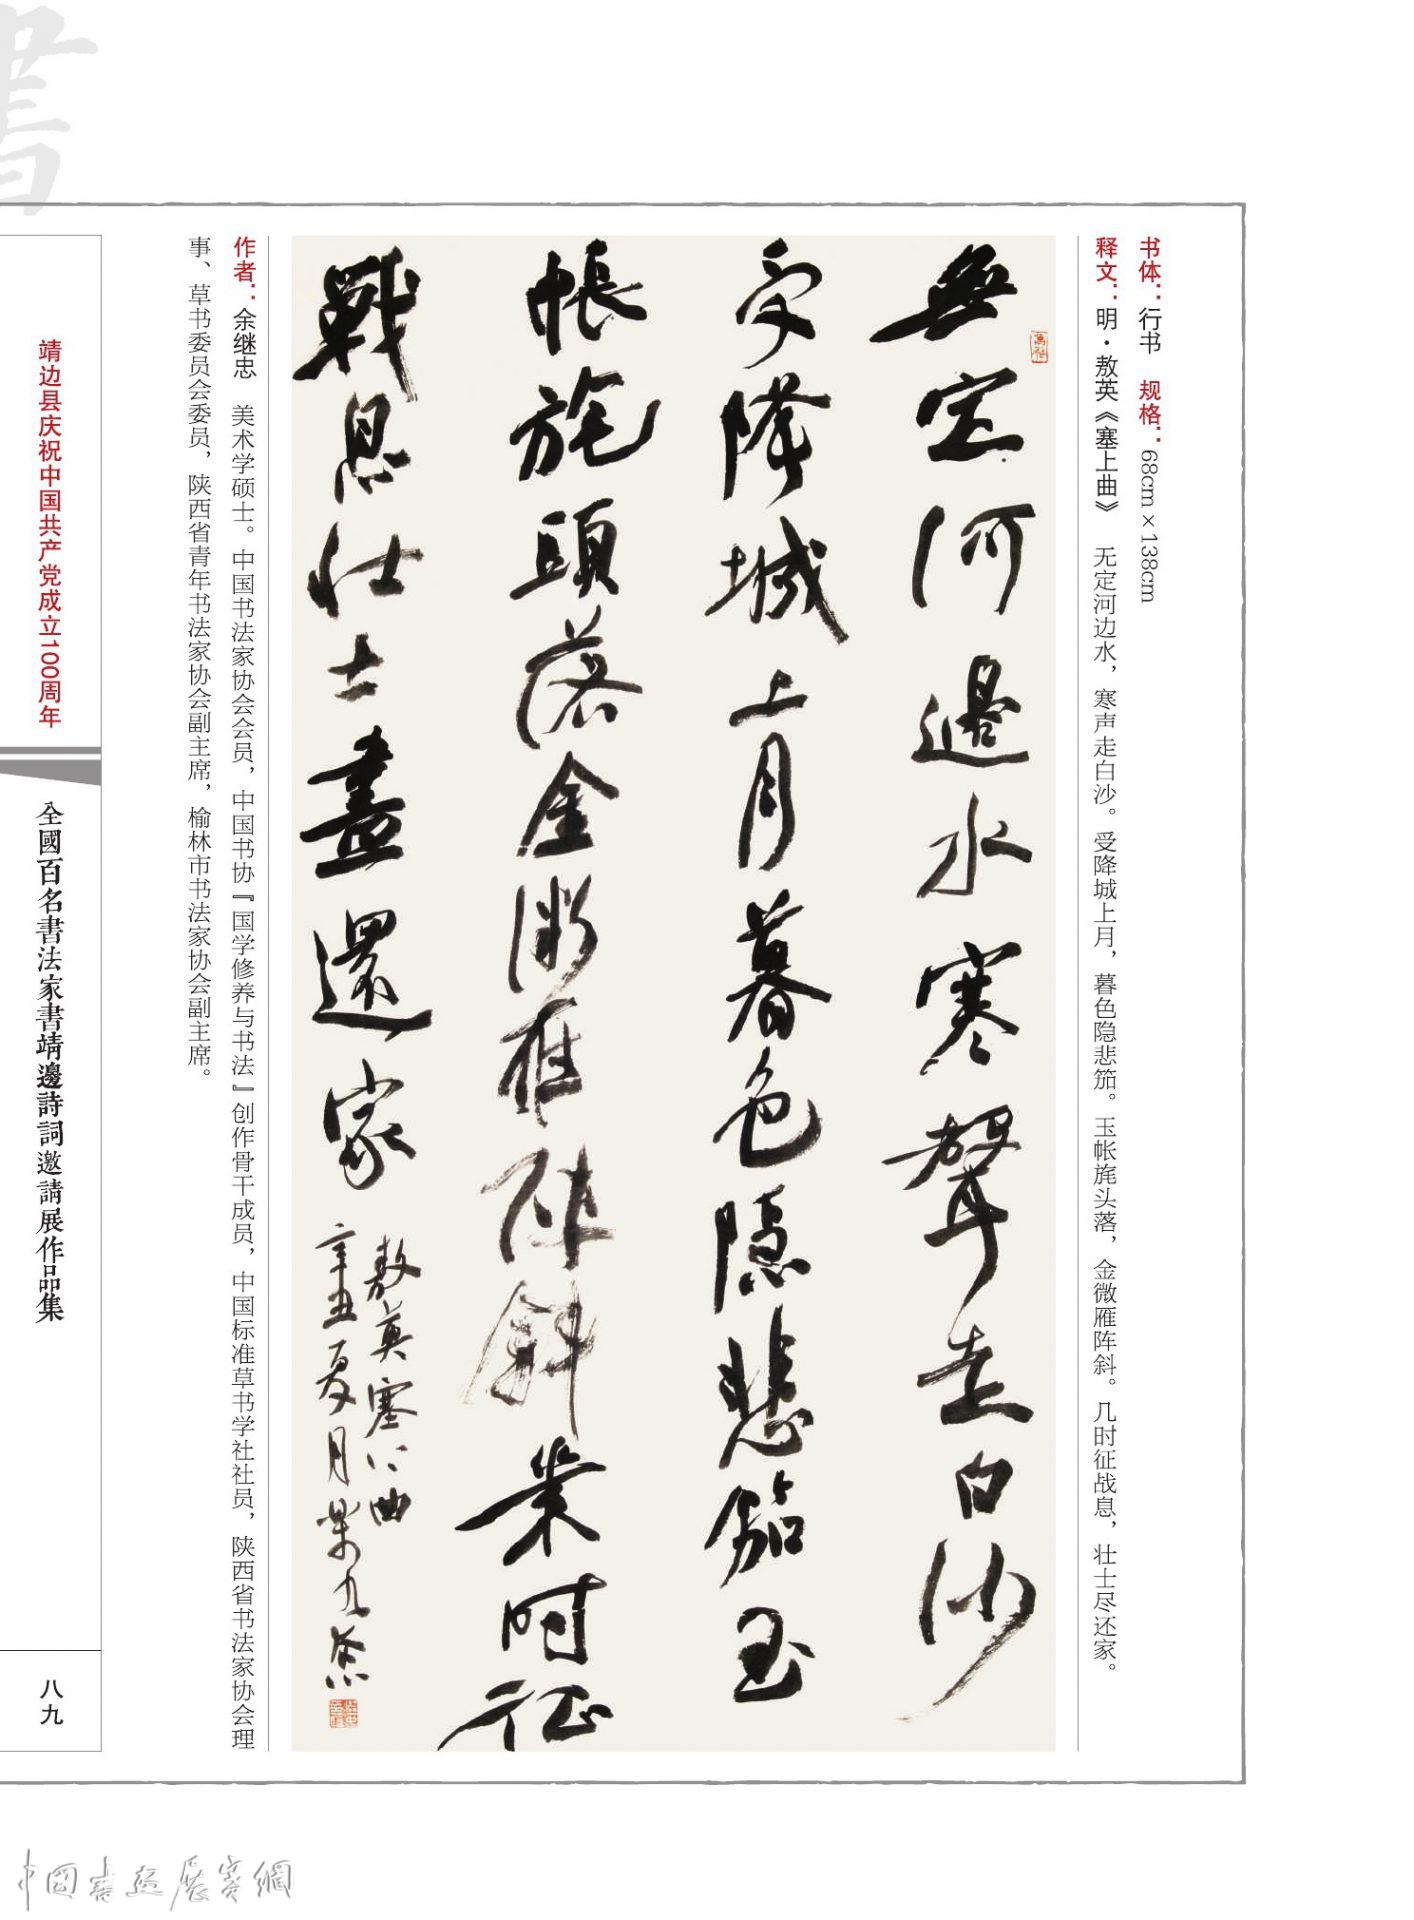 書
书体：行书　规格：68cm×138cm
释文：明·敖英《塞上曲》　无定河边水，寒声走白沙。受降城上月，暮色隐悲笳。玉帐旄头落，金微雁阵斜。几时征战息，壮士尽还家。
無定河邊水寒聲走白沙
受降城上月暮色隱悲笳玉
帳旄頭落金微雁陣斜時征
戰息壮士盡還家
敖英塞上曲
辛丑夏月
作者：余继忠　美术学硕士。中国书法家协会会员，中国书协『国学修养与书法』创作骨干成员，中国标准草书学社社员，陕西省书法家协会理
事、草书委员会委员，陕西省青年书法家协会副主席，榆林市书法家协会副主席。
靖边县庆祝中国共产党成立100周年
全國百名書法家書靖邊詩詞邀請展作品集
八九
中國書画展赛網